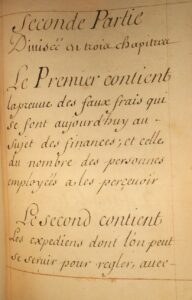 Seconde Partie
Divisée en trois chapitres
Le Premier contient
la preuve des faux frais qui
se font aujourd'huy au
sujet des finances; et celle
du nombre des personnes
employées a les percevoir
Le second contient
Les expediens dont l'on peut
se servir pour regler, avec